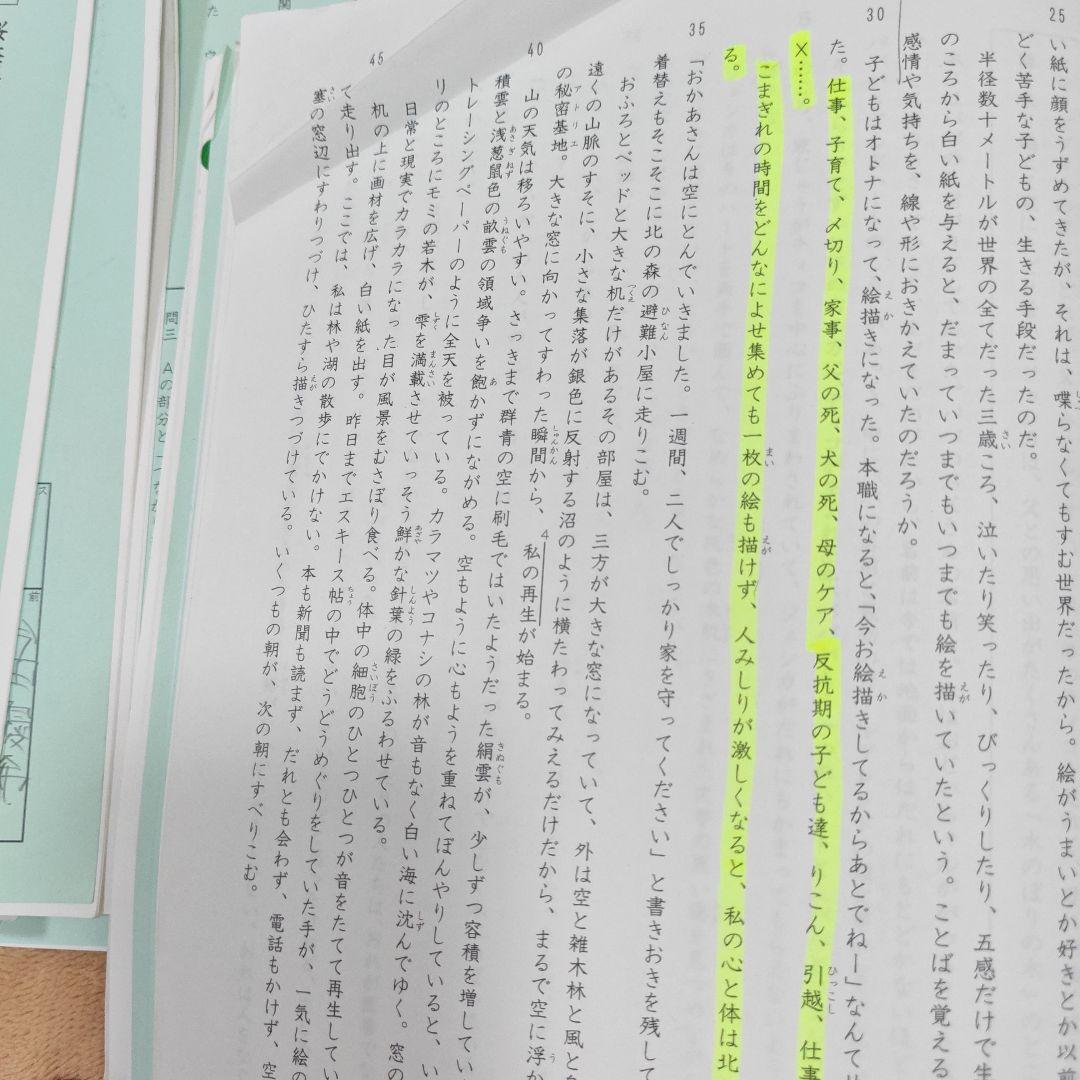 25
30
35
40
45
い紙に顔をうずめてきたが、それは、喋らなくてもすむ世界だったから。絵がうまいとか好きとか以前
どく苦手な子どもの、生きる手段だったのだ。
半径数十メートルが世界の全てだった三歳ころ、泣いたり笑ったり、びっくりしたり、五感だけで生
のころから白い紙を与えると、だまっていつまでもいつまでも絵を描いていたという。ことばを覚える
感情や気持ちを、線や形におきかえていたのだろうか。
子どもはオトナになって、絵描きになった。本職になると、「今お絵描きしてるからあとでねー」なんて
た。仕事、子育て、〆切り、家事、父の死、犬の死、母のケア、反抗期の子ども達、りこん、引越、仕事
×……。
こまぎれの時間をどんなによせ集めても一枚の絵も描けず、人みしりが激しくなると、私の心と体は北
る。
「おかあさんは空にとんでいきました。一週間、二人でしっかり家を守ってください」と書きおきを残して
着替えもそこそこに北の森の避難小屋に走りこむ。
おふろとベッドと大きな机だけがあるその部屋は、三方が大きな窓になっていて、外は空と雑木林と風と
遠くの山脈のすそに、小さな集落が銀色に反射する沼のように横たわってみえるだけだから、まるで空に浮か
の秘密基地。大きな窓に向かってすわった瞬間から、私の再生が始まる。
山の天気は移ろいやすい。さっきまで群青の空に刷毛ではいたようだった絹雲が、少しずつ容積を増してい
積雲と浅葱鼠色の畝雲の領域争いを飽かずにながめる。空もように心もようを重ねてぼんやりしていると、い
トレーシングペーパーのように全天を被っている。カラマツやコナシの林が音もなく白い海に沈んでゆく。窓の
リのところにモミの若木が、雫を満載させていっそう鮮かな針葉の緑をふるわせている。
日常と現実でカラカラになった目が風景をむさぼり食べる。体中の細胞のひとつひとつが音をたてて再生してい
机の上に画材を広げ、白い紙を出す。昨日までエスキース帖の中でどうどうめぐりをしていた手が、一気に絵の
て走り出す。ここでは、私は林や湖の散歩にでかけない。本も新聞も読まず、だれとも会わず、電話もかけず、空
塞の窓辺にすわりつづけ、ひたすら描きつづけている。いくつもの朝が、次の朝にすべりこむ。
問三 Aの部分と